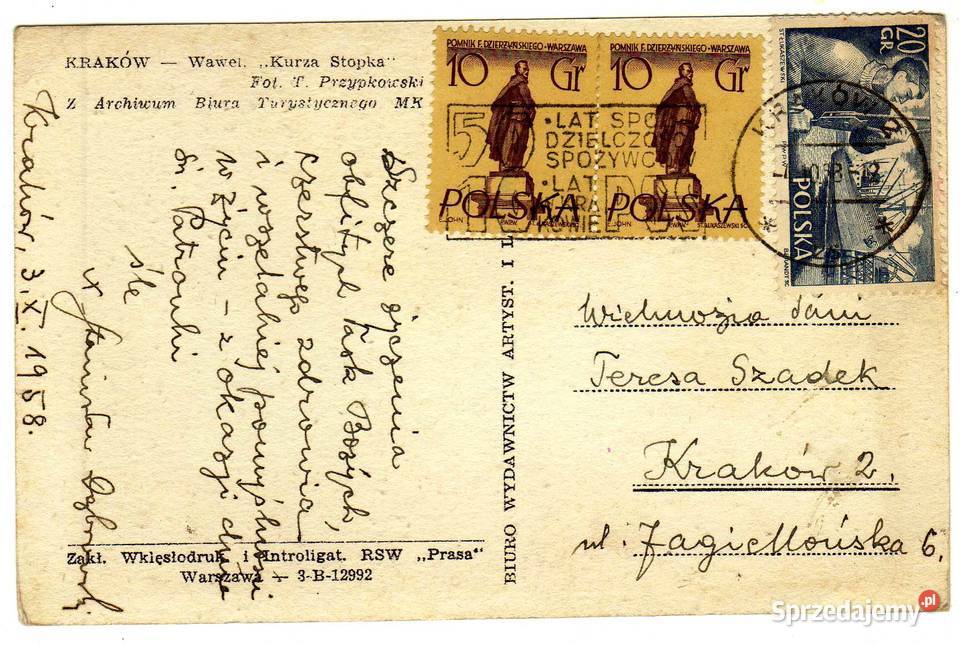 KRAKÓW — Wawel. „Kurza Stopka"
Fot. T. Przypkowski
Z Archiwum Biura Turystycznego MK
Kraków, 3.X.1958.
Szczere życzenia
obfitych łask Bożych,
czerstwego zdrowia
i wszelakiej pomyślności
w życiu – z okazji dnia
św. Patronki
śle
x Stanisław
Zakł. Wklęsłodruk. i Introligat. RSW „Prasa"
Warszawa — 3-B-12992
BIURO WYDAWNICTW ARTYST. I
POMNIK F. DZIERŻYŃSKIEGO-WARSZAWA
10 Gr
POLSKA
E. JOHN
POMNIK F. DZIERŻYŃSKIEGO-WARSZAWA
10 Gr
POLSKA
E. JOHN
ST. ŁUKASZEWSKI SC.
LAT SPÓŁ
DZIELCZOŚ
SPOŻYWCÓ
LAT
20 GR.
POLSKA
KRAKÓW
Wielmożna Pani
Teresa Szadek
Kraków 2.
ul. Jagiellońska 6.
Sprzedajemy.pl